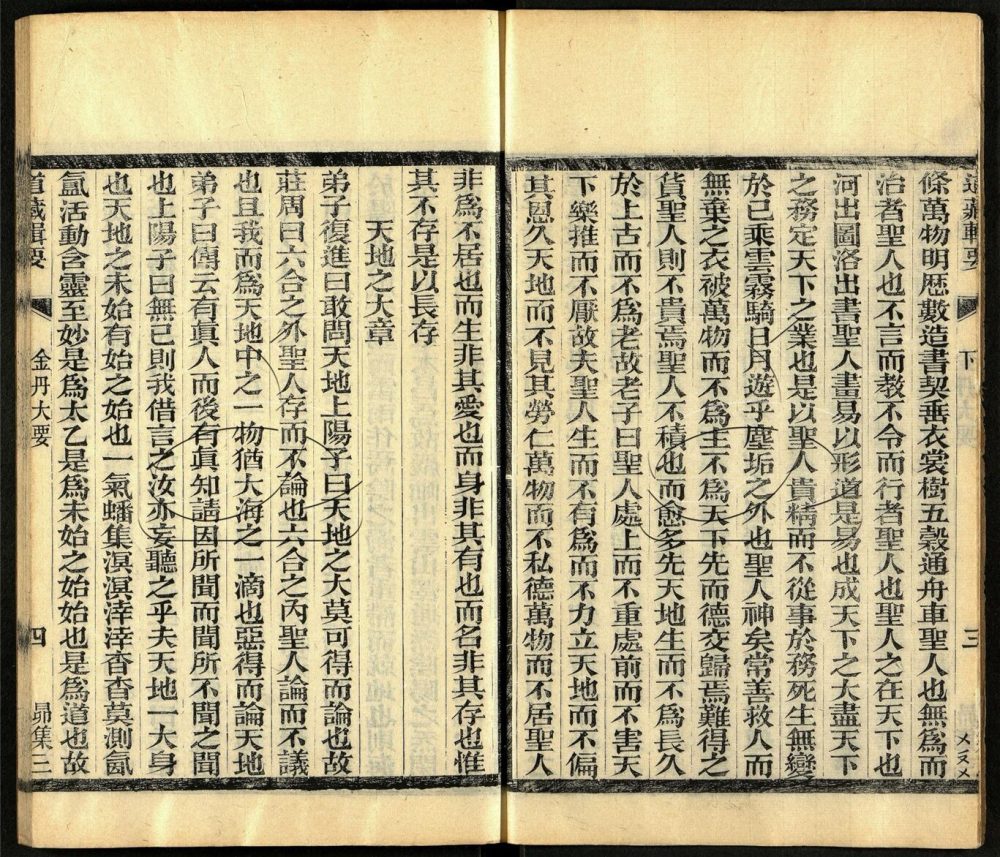 道藏輯要 下 三
條萬物明歷數造書契垂衣裳樹五穀通舟車聖人也無爲而
治者聖人也不言而教不令而行者聖人也聖人之在天下也
河出圖洛出書聖人畫易以形道是易也成天下之大盡天下
之務定天下之業也是以聖人貴精而不從事於務死生無變
於己乘雲霧騎日月遊乎塵垢之外也聖人神矣常善救人而
無棄之衣被萬物而不爲主不爲天下先而德交歸焉難得之
貨聖人則不貴焉聖人不積也而愈多先天地生而不爲長久
於上古而不爲老故老子曰聖人處上而不重處前而不害天
下樂推而不厭故夫聖人生而不有爲而不力立天地而不偏
其恩久天地而不見其勞仁萬物而不私德萬物而不居聖人
非爲不居也而生非其愛也而身非其有也而名非其存也惟
其不存是以長存
天地之大章
弟子復進曰敢問天地上陽子曰天地之大莫可得而論也故
莊周曰六合之外聖人存而不論也六合之內聖人論而不議
也且我而爲天地中之一物猶大海之一滴也惡得而論天地
弟子曰傳云有眞人而後有眞知請因所聞而聞所不聞之聞
也上陽子曰無已則我借言之汝亦妄聽之乎夫天地一大身
也天地之未始有始之始也一氣蟠集溟溟涬涬杳杳莫測氤
氳活動含靈至妙是爲太乙是爲未始之始始也是爲道也故
道藏輯要 金丹大要 四 昴集三